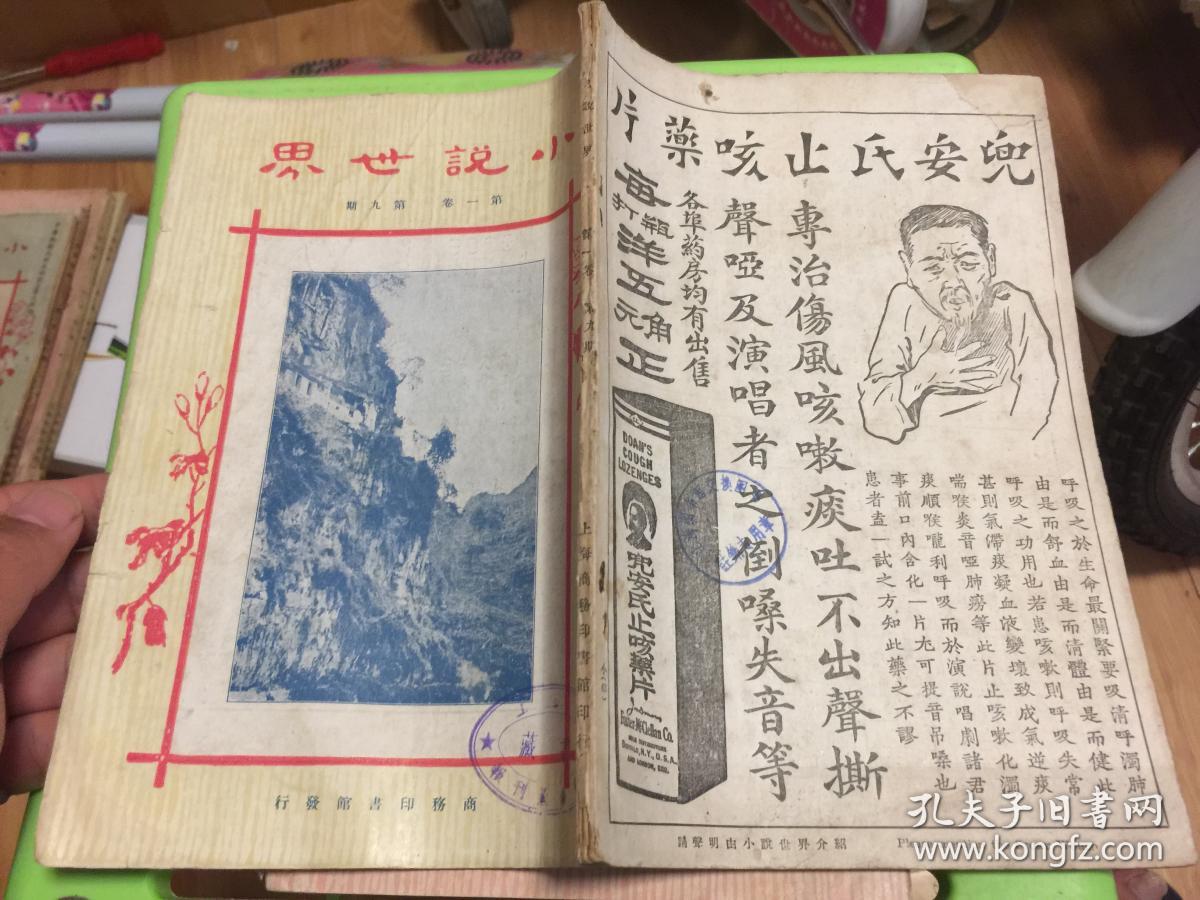 小說世界
第一卷 第九期
商務印書館發行
藏
第一卷 第九期
上海商務印書館印行
兜安氏止咳藥片
專治傷風咳嗽痰吐不出聲撕
咳聲啞及演唱者之倒嗓失音等
各埠葯房均有出售
每瓶洋五角
每打洋五元正
DOAN'S
COUGH
LOZENGES
兜安氏止咳藥片
Foster McClellan Co.
BUFFALO, N.Y., U.S.A.
AND LONDON, ENG.
呼吸之於生命最關緊要吸清呼濁肺
由是而舒血由是而清體由是而健此
呼吸之功用也若患咳嗽則呼吸失常
甚則氣滯痰凝血液變壞致成氣逆痰
喘喉炎音啞肺癆等此片止咳嗽化濁
痰順喉嚨利呼吸而於演說唱劇諸君
事前口內含化一片尤可提音吊嗓也
患者盍一試之方知此藥之不謬
請聲明由小說世界介紹
孔夫子旧书网
www.kongfz.com